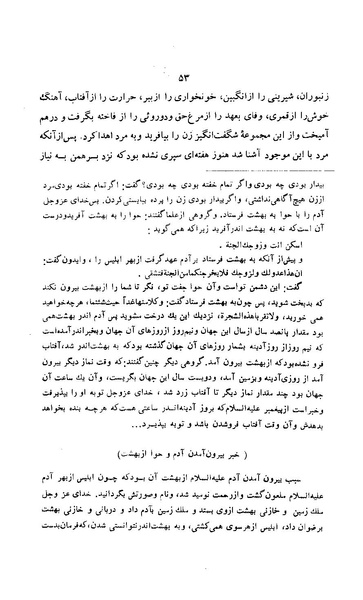 ۵۳
زنبوران، شیرینی را از انگبین، خونخواری را از ببر، حرارت را از آفتاب، آهنگ
خوش را از قمری، وفای بعهد را از مرغ حق و دوروئی را از فاخته بگرفت و درهم
آمیخت و از این مجموعهٔ شگفت‌انگیز زن را بیافرید و به مرد اهدا کرد. پس از آنکه
مرد با این موجود آشنا شد هنوز هفته‌ای سپری نشده بود که نزد برهمن به نیاز
بیدار بودی چه بودی و اگر تمام خفته بودی چه بودی؟ گفت: اگر تمام خفته بودی، مرد
از زن هیچ آگاهی نداشتی، و اگر بیدار بودی زن را پرده ببایستی کردن. پس خدای عزوجل
آدم را با حوا به بهشت فرستاد. و گروهی از علما گفتند: حوا را به بهشت آفرید و درست
آن است که نه به بهشت اندر آفرید زیرا که همی گوید:
اسکن انت و زوجک الجنة.
و پیش از آنکه به بهشت فرستاد بر آدم عهد گرفت از بهر ابلیس را، و ایدون گفت:
ان هذا عدولک و لزوجک فلا یخرجنکما من الجنة فتشقی.
گفت: این دشمن تواست و آن حوا جفت تو، نگر تا شما را از بهشت بیرون نکند
که بدبخت شوید، پس چون به بهشت فرستاد گفت: و کلا منها رغداً حیث شئتما، هرچه خواهید
می خورید، و لا تقربا هذا الشجرة، نزدیک این یک درخت مشوید پس آدم اندر بهشت همی
بود مقدار پانصد سال از سال این جهان و نیم روز از روزهای آن جهان و بخبر اندر آمده است
که نیم روز از روز آدینه بشمار روزهای آن جهان گذشته بود که به بهشت اندر شد، آفتاب
فرو نشده بود که از بهشت بیرون آمد. گروهی دیگر چنین گفتند: که وقت نماز دیگر بیرون
آمد از روزی آدینه و بزمین آمد، و دویست سال این جهان بگریست، و آن یک ساعت آن
جهان بود چند مقدار نماز دیگر تا نماز شام کرد، خدای عزوجل توبه او را بپذیرفت
و خبر است از پیغمبر علیه‌السلام که بروز آدینه اندر ساعتی هست که هرچه بنده بخواهد
بدهدش و آن وقت آفتاب فروشدن باشد و توبه بپذیرد...
( خبر بیرون آمدن آدم و حوا از بهشت )
سبب بیرون آمدن آدم علیه‌السلام از بهشت آن بود که چون ابلیس از بهر آدم
علیه‌السلام ملعون گشت و از رحمت نومید شد، و نام و صورتش بگردانید. خدای عز وجل
ملک زمین و خازنی بهشت ازوی بستد و ملک زمین بآدم داد و دربانی و خازنی بهشت
برضوان داد، ابلیس از هرسوی همی گشتی، و به بهشت اندر نتوانستی شدن، که فرمان بدست